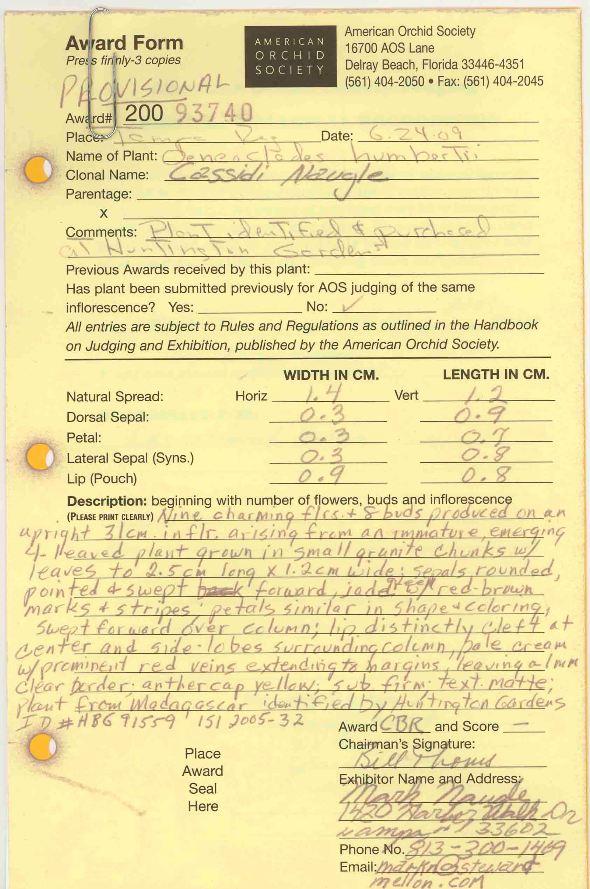 Award Form
Press firmly-3 copies
AMERICAN
ORCHID
SOCIETY
American Orchid Society
16700 AOS Lane
Delray Beach, Florida 33446-4351
(561) 404-2050 • Fax: (561) 404-2045
PROVISIONAL
Award# 200 93740
Place: Tampa Date: 6.24.09
Name of Plant: Oeneoclades humbertii
Clonal Name: Cassidi Naugle
Parentage:
X
Comments: Plant identified & purchased
at Huntington Gardens
Previous Awards received by this plant:
Has plant been submitted previously for AOS judging of the same
inflorescence? Yes: No: ✓
All entries are subject to Rules and Regulations as outlined in the Handbook
on Judging and Exhibition, published by the American Orchid Society.
WIDTH IN CM. LENGTH IN CM.
Natural Spread: Horiz 1.4 Vert 1.2
Dorsal Sepal: 0.3 0.9
Petal: 0.3 0.7
Lateral Sepal (Syns.) 0.3 0.8
Lip (Pouch) 0.9 0.8
Description: beginning with number of flowers, buds and inflorescence
(PLEASE PRINT CLEARLY) Nine charming flrs. + 8 buds produced on an
upright 31cm. inflr. arising from an immature, emerging
4-leaved plant grown in small granite chunks w/
leaves to 2.5cm long x 1.2cm wide; sepals rounded,
pointed & swept back forward, jade green w/ red-brown
marks & stripes; petals similar in shape & coloring,
swept forward over column; lip distinctly cleft at
center and side-lobes surrounding column, pale cream
w/prominent red veins extending to margins, leaving a 1mm
clear border; anther cap yellow; sub firm; text. matte;
plant from Madagascar identified by Huntington Gardens
ID #HBG 91559 151 2005-32
Award CBR and Score —
Chairman's Signature:
Bill Thoms
Place
Award
Seal
Here
Exhibitor Name and Address:
Mark Naugle
1420 Harbor Walk Dr
Tampa 33602
Phone No. 813-200-1469
Email: markn@stewart
mellon.com